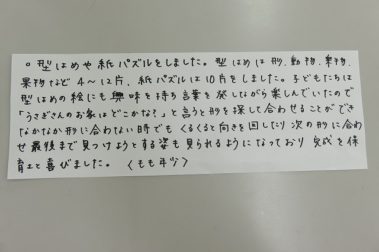 ○ 型はめや紙パズルをしました。型はめは形、動物、乗物、
果物など 4〜12片、紙パズルは10片をしました。子どもたちは
型はめの絵にも興味を持ち言葉を発しながら楽しんでいたので
「うさぎさんのお家はどこかな？」と言うと形を探して合わせることができ
なかなか形に合わない時でもくるくると向きを回したり次の形に合わ
せ最後まで見つけようとする姿も見られるようになっており完成を保
育士と喜びました。〈もも